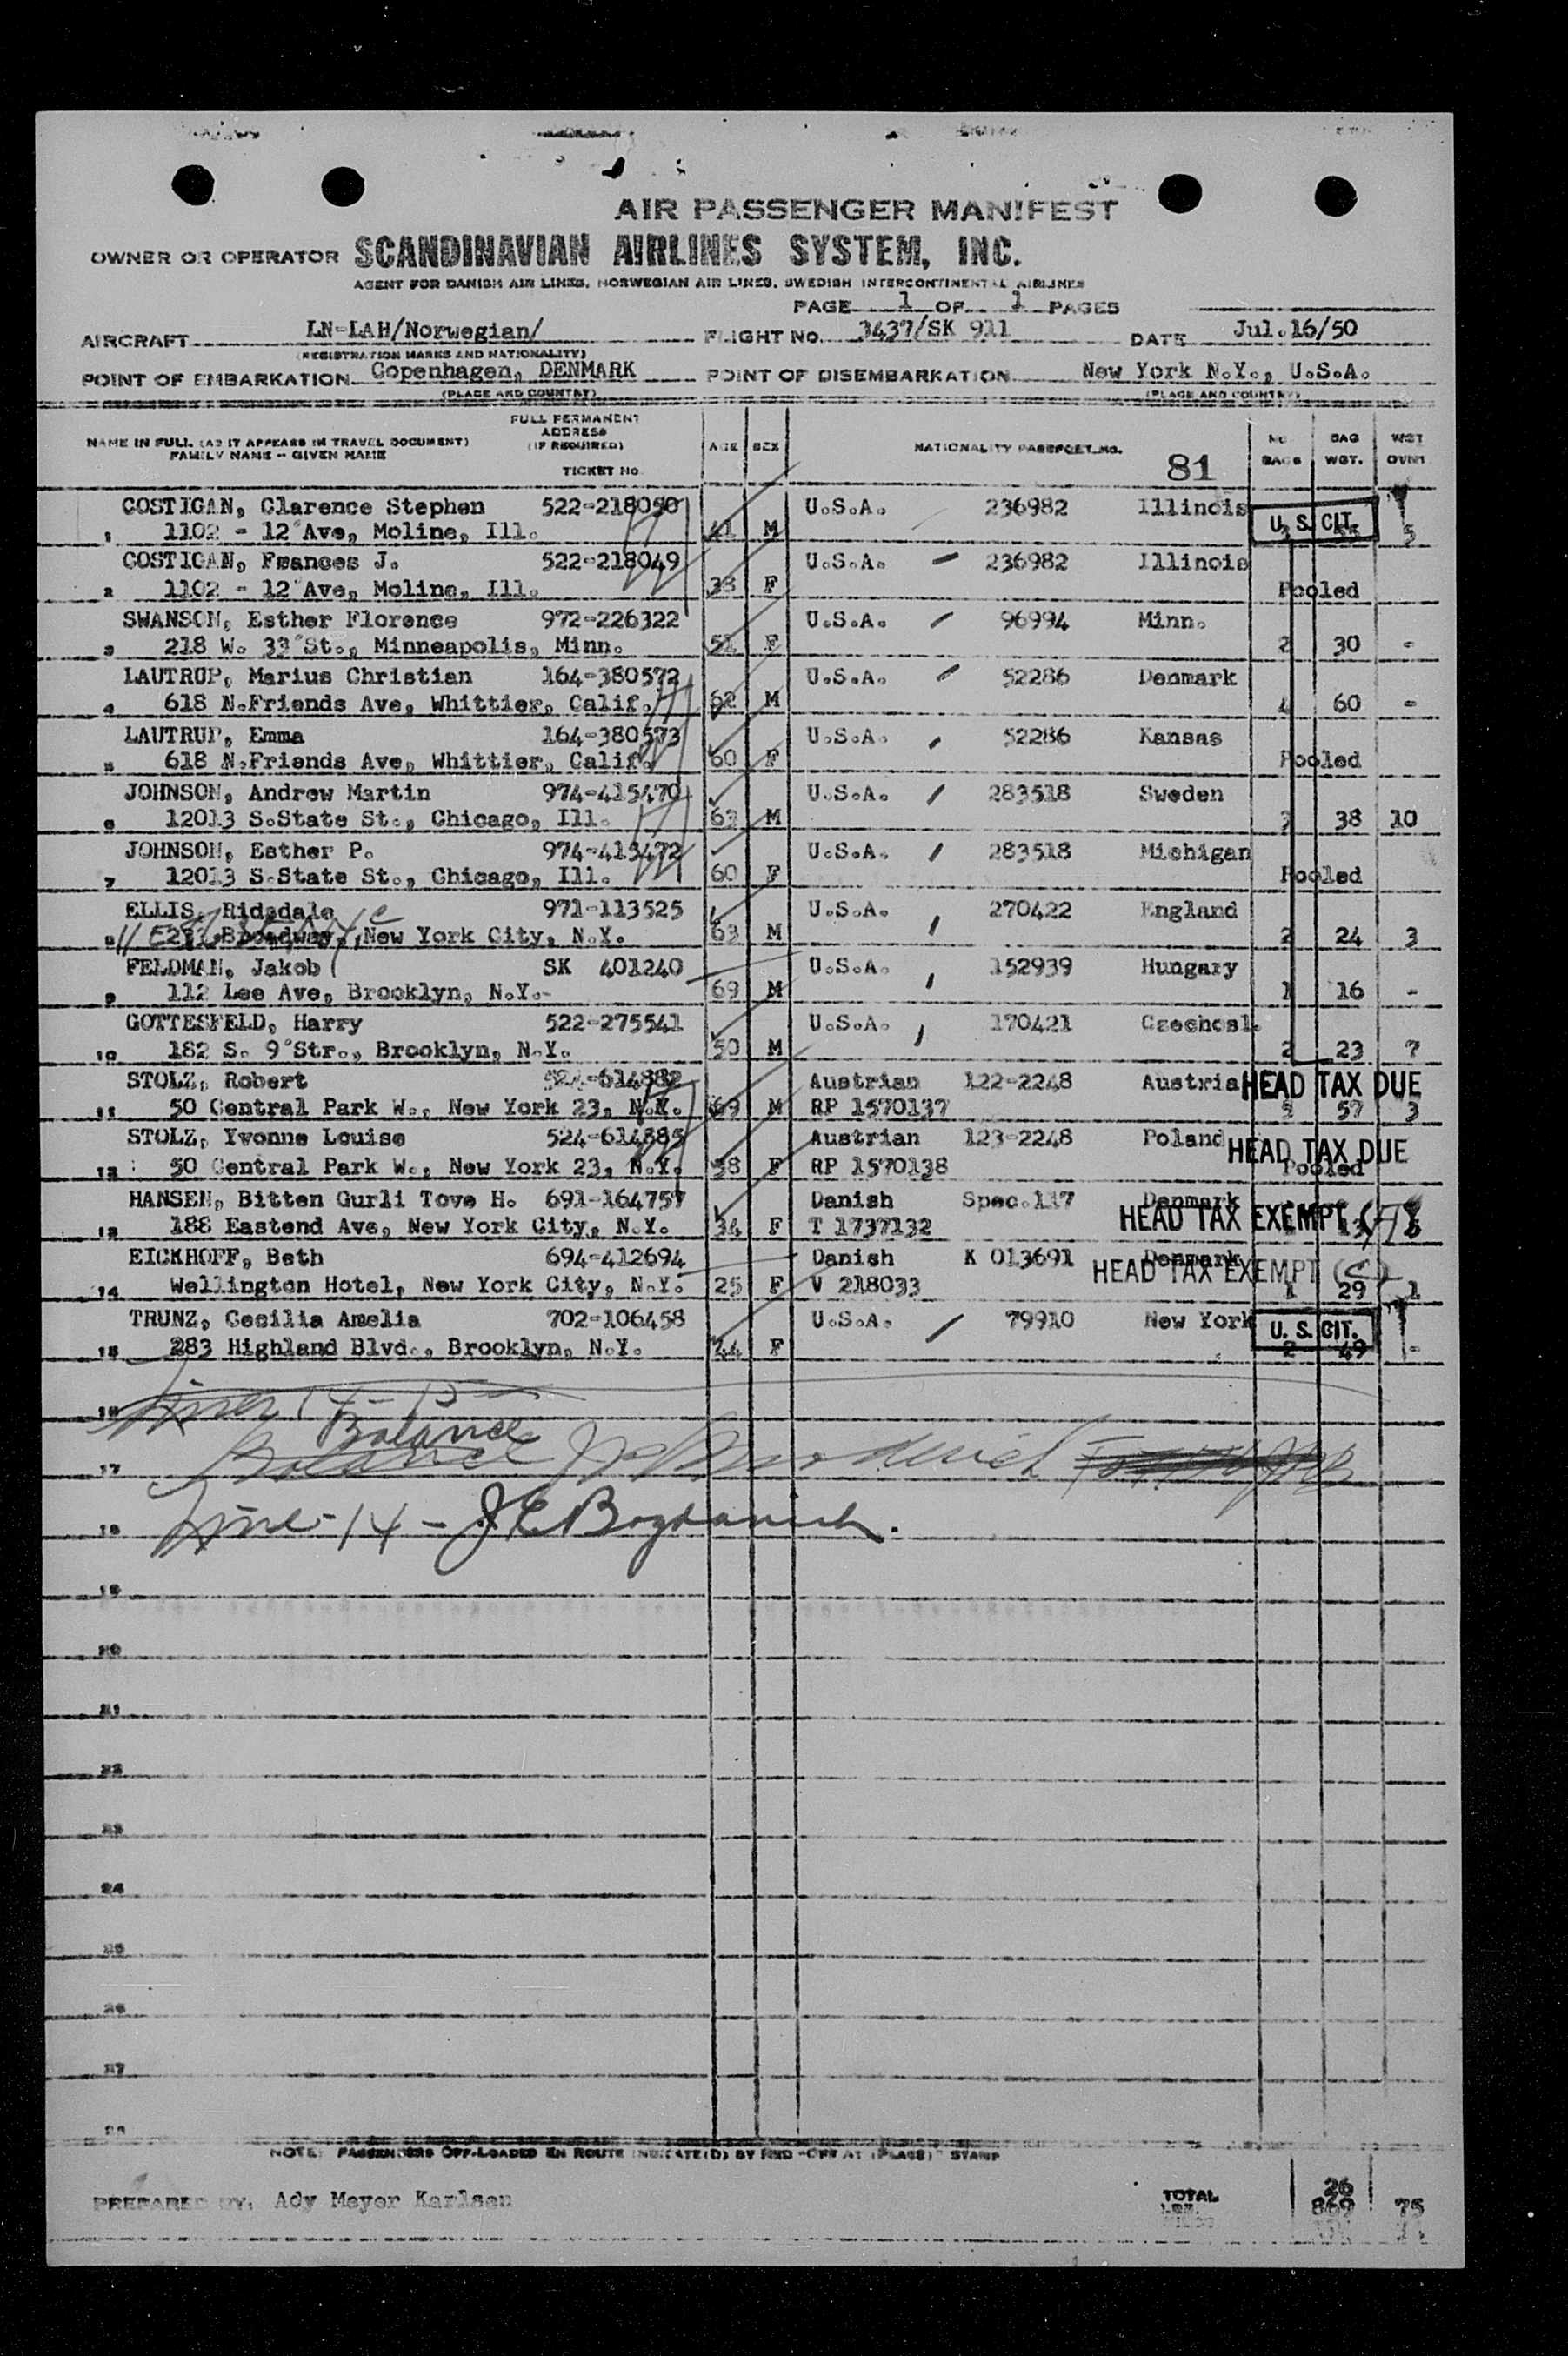 AIR PASSENGER MANIFEST
OWNER OR OPERATOR SCANDINAVIAN AIRLINES SYSTEM, INC.
AGENT FOR DANISH AIR LINES, NORWEGIAN AIR LINES, SWEDISH INTERCONTINENTAL AIRLINES
PAGE 1 OF 1 PAGES
AIRCRAFT LN-LAH/Norwegian/ FLIGHT NO. 3437/SK 911 DATE Jul.16/50
(REGISTRATION MARKS AND NATIONALITY)
POINT OF EMBARKATION Copenhagen, DENMARK POINT OF DISEMBARKATION New York N.Y., U.S.A.
(PLACE AND COUNTRY) (PLACE AND COUNTRY)
NAME IN FULL (AS IT APPEARS IN TRAVEL DOCUMENT) FAMILY NAME - GIVEN NAME FULL PERMANENT ADDRESS (IF REQUIRED) TICKET NO. AGE SEX NATIONALITY PASSPORT NO. 81 NO. BAGS BAG WGT. WGT OVWT
COSTIGAN, Clarence Stephen 522-218050 U.S.A. 236982 Illinois U. S. CIT.
1 1102 - 12 Ave, Moline, Ill. 41 M 5
COSTIGAN, Frances J. 522-218049 U.S.A. 236982 Illinois
2 1102 - 12 Ave, Moline, Ill. 38 F Pooled
SWANSON, Esther Florence 972-226322 U.S.A. 96994 Minn.
3 218 W. 33 St., Minneapolis, Minn. 51 F 2 30 -
LAUTRUP, Marius Christian 164-380572 U.S.A. 52286 Denmark
4 618 N.Friends Ave, Whittier, Calif. 62 M 4 60 -
LAUTRUP, Emma 164-380573 U.S.A. 52286 Kansas
5 618 N.Friends Ave, Whittier, Calif. 60 F Pooled
JOHNSON, Andrew Martin 974-415470 U.S.A. 283518 Sweden
6 12013 S.State St., Chicago, Ill. 63 M 3 38 10
JOHNSON, Esther P. 974-415472 U.S.A. 283518 Michigan
7 12013 S.State St., Chicago, Ill. 60 F Pooled
ELLIS, Ridsdale 971-113525 U.S.A. 270422 England
8 Broadway, New York City, N.Y. 63 M 2 24 3
FELDMAN, Jakob SK 401240 U.S.A. 152939 Hungary
9 112 Lee Ave, Brooklyn, N.Y. 69 M 1 16 -
GOTTESFELD, Harry 522-275541 U.S.A. 170421 Czechosl.
10 182 S. 9 Str., Brooklyn, N.Y. 50 M 2 23 7
STOLZ, Robert 524-614882 Austrian 122-2248 Austria HEAD TAX DUE
11 50 Central Park W., New York 23, N.Y. 69 M RP 1570137 5 57 3
STOLZ, Yvonne Louise 524-614885 Austrian 123-2248 Poland HEAD TAX DUE
12 50 Central Park W., New York 23, N.Y. 38 F RP 1570138 Pooled
HANSEN, Bitten Gurli Tove H. 691-164757 Danish Spec.117 Denmark
13 188 Eastend Ave, New York City, N.Y. 34 F T 1737132 HEAD TAX EXEMPT
EICKHOFF, Beth 694-412694 Danish K 013691 Denmark HEAD TAX EXEMPT
14 Wellington Hotel, New York City, N.Y. 25 F V 218033 1 29 1
TRUNZ, Cecilia Amelia 702-106458 U.S.A. 79910 New York U. S. CIT.
15 283 Highland Blvd., Brooklyn, N.Y. 44 F 2 49 -
16
Balance
17 Balance
18 Line - 14 - J E Bogdanich.
19
20
21
22
23
24
25
26
27
28
NOTE: PASSENGERS OFF-LOADED EN ROUTE INDICATE(D) BY RED "OFF AT (PLACE)" STAMP
PREPARED BY: Ady Meyer Karlsen TOTAL 26 869 75